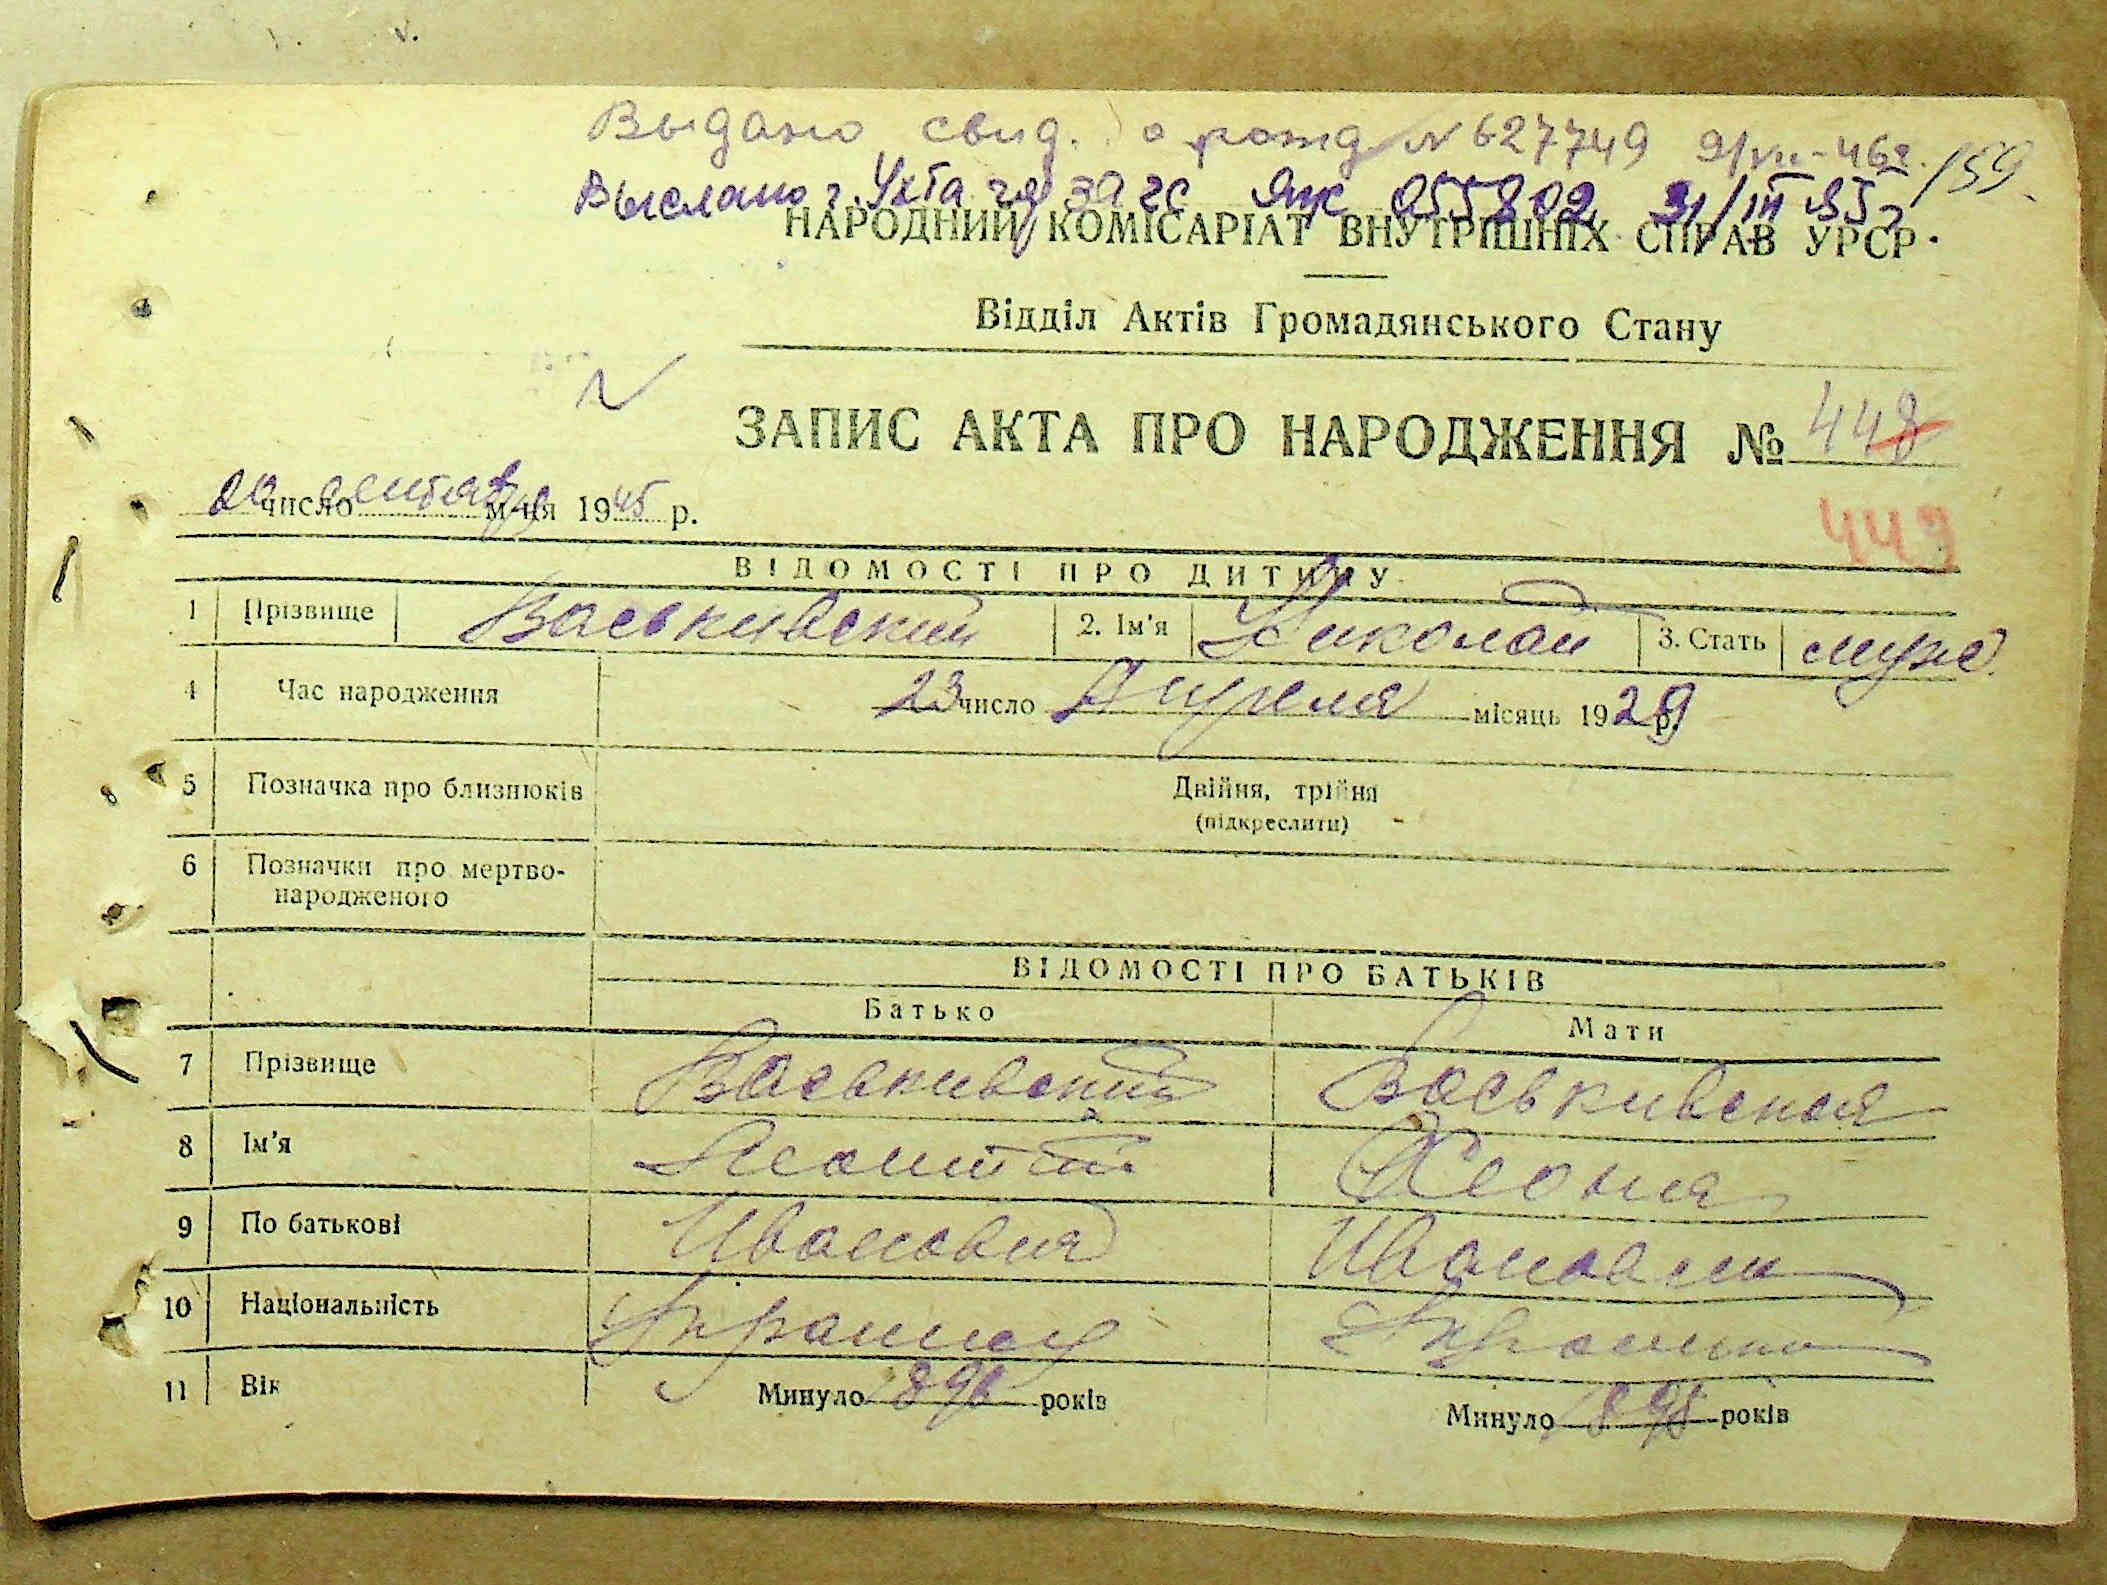 Выдано свид. о рожд N 627749 9/VII-46г. /59.
Выслано г. Ухта загс ЯЖ 055802 31/III 85г.
НАРОДНИЙ КОМІСАРІАТ ВНУТРІШНІХ СПРАВ УРСР
Відділ Актів Громадянського Стану
ЗАПИС АКТА ПРО НАРОДЖЕННЯ № 448
449
20 число сентября м-ця 1945 р.
ВІДОМОСТІ ПРО ДИТИНУ
1 Прізвище Васькивский 2. Ім'я Николай 3. Стать муж.
4 Час народження 23 число Апреля місяць 1929 р.
5 Позначка про близнюків Двійня, трійня
(підкреслити)
6 Позначки про мертво-
народженого
ВІДОМОСТІ ПРО БАТЬКІВ
Батько Мати
7 Прізвище Васькивский Васькивская
8 Ім'я Леонтий Ксения
9 По батькові Иванович Ивановна
10 Національність Украинец Украинка
11 Вік Минуло 1896 років Минуло 1898 років